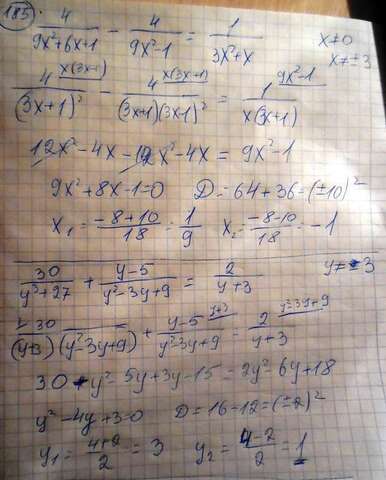 185. 4/(9x²+6x+1) - 4/(9x²-1) = 1/(3x²+x)   x≠0
x≠±3
4 x(3x-1)/(3x+1)² - 4 x(3x+1)/((3x+1)(3x-1)²) = 1 9x²-1/(x(3x+1))
12x²-4x-12x²-4x = 9x²-1
9x²+8x-1=0   D=64+36=(±10)²
x₁=(-8+10)/18=1/9   x₂=(-8-10)/18=-1
30/(y³+27) + (y-5)/(y²-3y+9) = 2/(y+3)   y≠-3
30/((y+3)(y²-3y+9)) + (y-5) y+3/(y²-3y+9) = 2 y²-3y+9/(y+3)
30+y²-5y+3y-15=2y²-6y+18
y²-4y+3=0   D=16-12=(±2)²
y₁=(4+2)/2=3   y₂=(4-2)/2=1